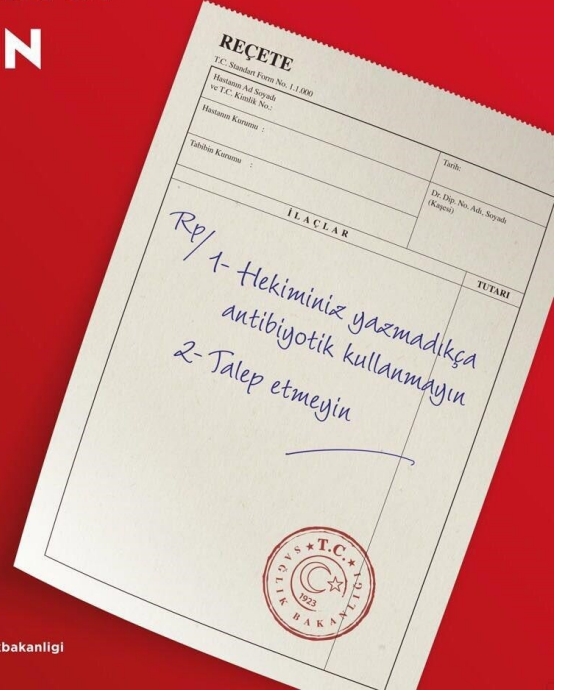 N
REÇETE
T.C. Standart Form No. 1.1.000
Hastanın Ad Soyadı
ve T.C. Kimlik No.:
Hastanın Kurumu :
Tabibin Kurumu :
Tarih:
Dr. Dip. No. Adı, Soyadı
(Kaşesi)
İLAÇLAR
TUTARI
Rp/ 1- Hekiminiz yazmadıkça
antibiyotik kullanmayın
2- Talep etmeyin
T.C.
SAĞLIK BAKANLIĞI
1923
bakanligi